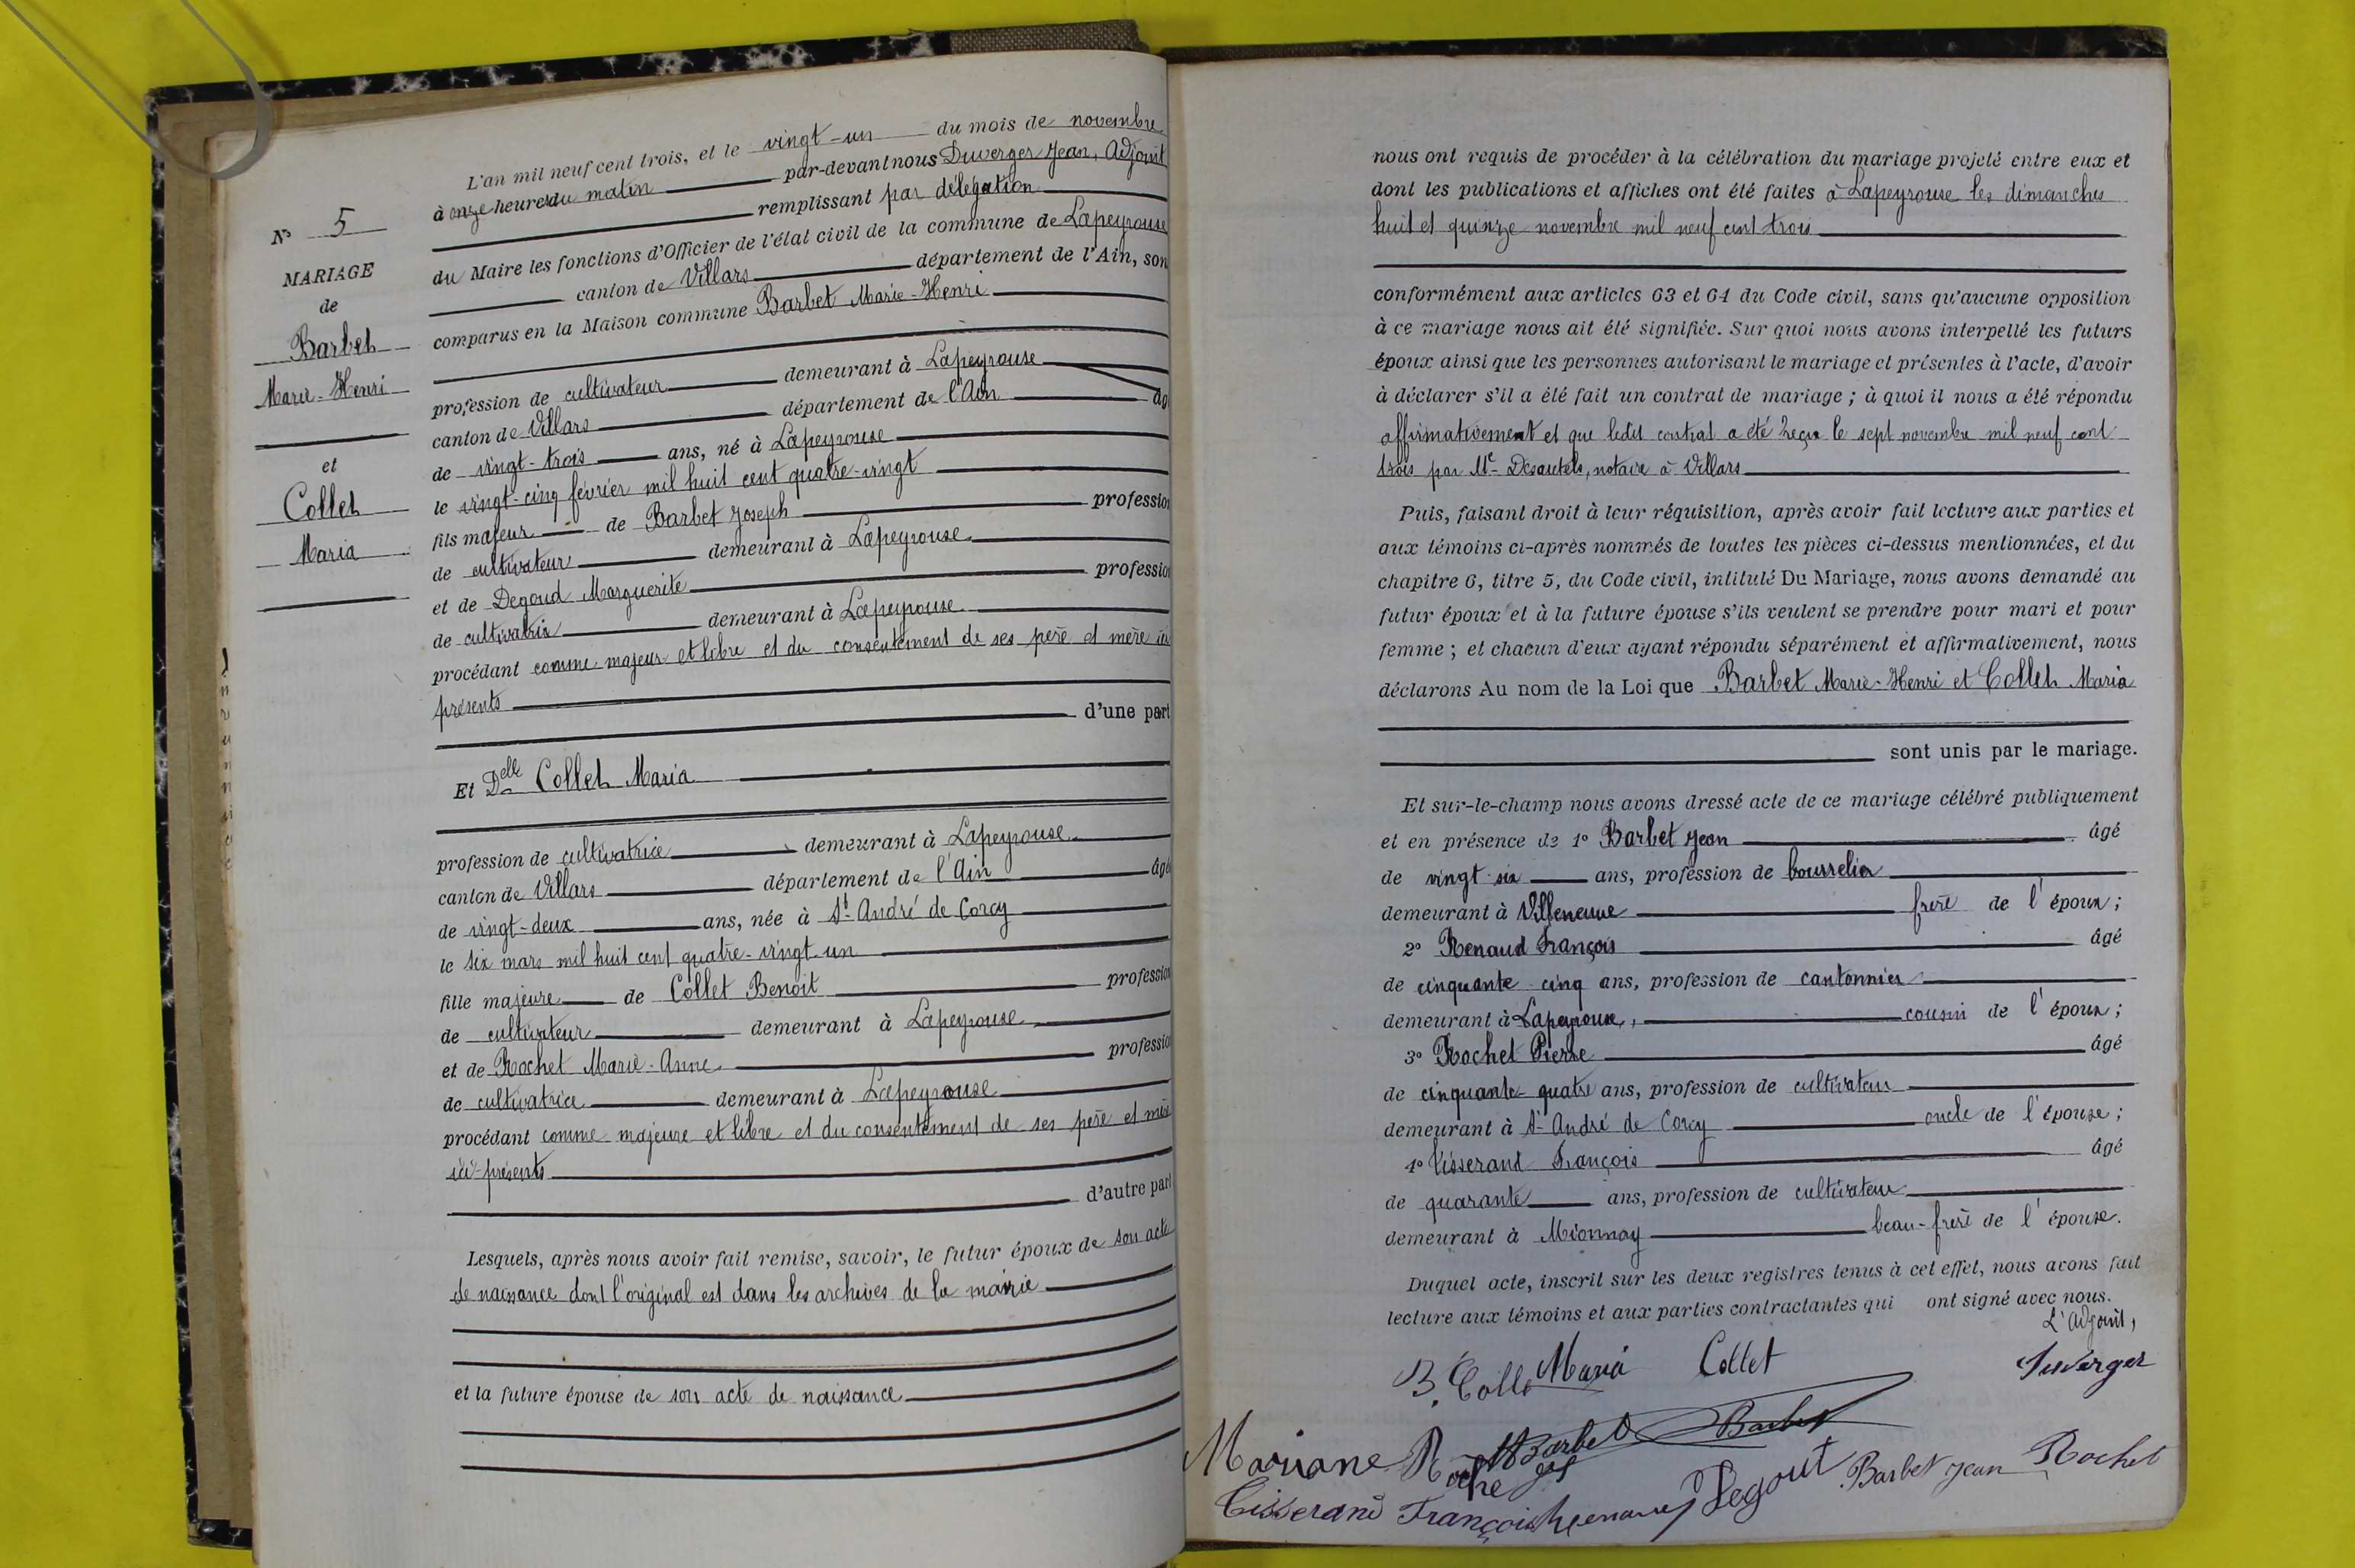 N° 5
MARIAGE
de
Barbet
Marie-Henri
et
Collet
Maria
L'an mil neuf cent trois, et le vingt-un du mois de novembre
à onze heures du matin par-devant nous Duverger Jean, Adjoint
remplissant par délégation
du Maire les fonctions d'Officier de l'état civil de la commune de Lapeyrouse
canton de Villars département de l'Ain, son
comparus en la Maison commune Barbet Marie-Henri
profession de cultivateur demeurant à Lapeyrouse
canton de Villars département de l'Ain âg
de vingt-trois ans, né à Lapeyrouse
le vingt-cinq février mil huit cent quatre-vingt
fils majeur de Barbet Joseph profession
de cultivateur demeurant à Lapeyrouse
et de Degoud Marguerite profession
de cultivatrice demeurant à Lapeyrouse
procédant comme majeur et libre et du consentement de ses père et mère ici
présents
d'une part
Et Delle Collet Maria
profession de cultivatrice demeurant à Lapeyrouse
canton de Villars département de l'Ain âgé
de vingt-deux ans, née à St André de Corcy
le six mars mil huit cent quatre-vingt-un
fille majeure de Collet Benoit profession
de cultivateur demeurant à Lapeyrouse
et de Rochet Marie-Anne profession
de cultivatrice demeurant à Lapeyrouse
procédant comme majeure et libre et du consentement de ses père et mère
ici-présents
d'autre part
Lesquels, après nous avoir fait remise, savoir, le futur époux de son acte
de naissance dont l'original est dans les archives de la mairie
et la future épouse de son acte de naissance
nous ont requis de procéder à la célébration du mariage projeté entre eux et
dont les publications et affiches ont été faites à Lapeyrouse les dimanches
huit et quinze novembre mil neuf cent trois
conformément aux articles 63 et 64 du Code civil, sans qu'aucune opposition
à ce mariage nous ait été signifiée. Sur quoi nous avons interpellé les futurs
époux ainsi que les personnes autorisant le mariage et présentes à l'acte, d'avoir
à déclarer s'il a été fait un contrat de mariage ; à quoi il nous a été répondu
affirmativement et que ledit contrat a été reçu le sept novembre mil neuf cent
trois par Me Désautels, notaire à Villars
Puis, faisant droit à leur réquisition, après avoir fait lecture aux parties et
aux témoins ci-après nommés de toutes les pièces ci-dessus mentionnées, et du
chapitre 6, titre 5, du Code civil, intitulé Du Mariage, nous avons demandé au
futur époux et à la future épouse s'ils veulent se prendre pour mari et pour
femme ; et chacun d'eux ayant répondu séparément et affirmativement, nous
déclarons Au nom de la Loi que Barbet Marie-Henri et Collet Maria
sont unis par le mariage.
Et sur-le-champ nous avons dressé acte de ce mariage célébré publiquement
et en présence de 1° Barbet Jean âgé
de vingt-six ans, profession de bourrelier
demeurant à Villeneuve frère de l'époux ;
2° Renaud François âgé
de cinquante cinq ans, profession de cantonnier
demeurant à Lapeyrouse, cousin de l'époux ;
3° Rochet Pierre âgé
de cinquante-quatre ans, profession de cultivateur
demeurant à St André de Corcy oncle de l'épouse ;
4° Tisserand François âgé
de quarante ans, profession de cultivateur
demeurant à Mionnay beau-frère de l'épouse.
Duquel acte, inscrit sur les deux registres tenus à cet effet, nous avons fait
lecture aux témoins et aux parties contractantes qui ont signé avec nous.
L'Adjoint,
B. Collet Maria Collet Duverger
Mariane Roche Barbet Barbet
Tisserand François Renaud Degout Barbet Jean Rochet